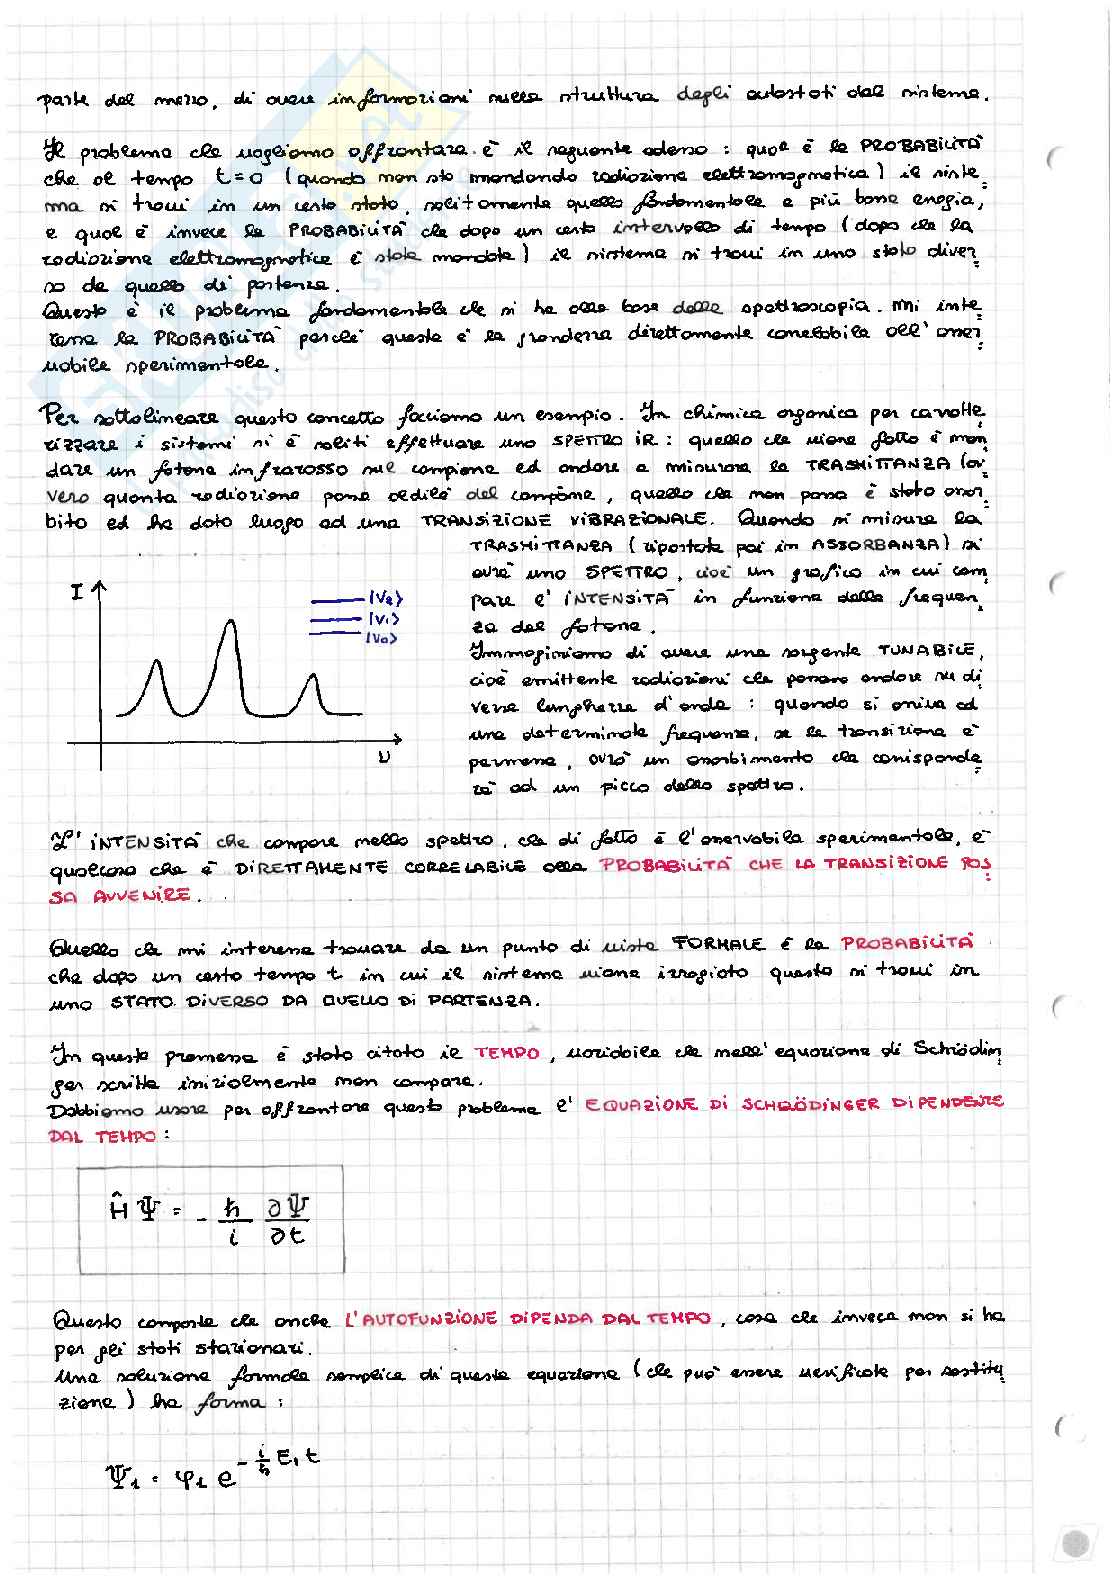 parte del mezzo, di avere informazioni sulla struttura degli autostati del sistema.
Il problema che vogliamo affrontare è il seguente adesso : qual è la PROBABILITÀ
che al tempo t=0 (quando non sto mandando radiazione elettromagnetica) il siste
ma si trovi in un certo stato, solitamente quello fondamentale a più bassa energia,
e qual è invece la PROBABILITÀ che dopo un certo intervallo di tempo (dopo che la
radiazione elettromagnetica è stata mandata) il sistema si trovi in uno stato diver
so da quello di partenza.
Questo è il problema fondamentale che si ha alla base della spettroscopia. Mi inte
ressa la PROBABILITÀ perché questa è la grandezza direttamente correlabile all' osser
vabile sperimentale.
Per sottolineare questo concetto facciamo un esempio. In chimica organica per caratte
rizzare i sistemi si è soliti effettuare uno SPETTRO IR : quello che viene fatto è man
dare un fotone infrarosso sul campione ed andare a misurare la TRASMITTANZA (ov
vero quanta radiazione passa aldilà del campione, quello che non passa è stato assor
bito ed ha dato luogo ad una TRANSIZIONE VIBRAZIONALE. Quando si misura la
TRASMITTANZA (riportata poi in ASSORBANZA) si
avrà uno SPETTRO, cioè un grafico in cui com
pare l' INTENSITÀ in funzione della frequen
za del fotone.
Immaginiamo di avere una sorgente TUNABILE,
cioè emittente radiazioni che possano andare su di
verse lunghezze d'onda : quando si arriva ad
una determinata frequenza, se la transizione è
permessa, avrò un assorbimento che corisponde
rà ad un picco dello spettro.
I
|V2⟩
|V1⟩
|V0⟩
ν
L' INTENSITÀ che compare nello spettro, che di fatto è l'osservabile sperimentale, è
qualcosa che è DIRETTAMENTE CORRELABILE alla PROBABILITÀ CHE LA TRANSIZIONE POS
SA AVVENIRE.
Quello che mi interessa trovare da un punto di vista FORMALE è la PROBABILITÀ
che dopo un certo tempo t in cui il sistema viene irraggiato questo si trovi in
uno STATO DIVERSO DA QUELLO DI PARTENZA.
In questa premessa è stato citato il TEMPO, variabile che nell' equazione di Schrödin
ger scritta inizialmente non compare.
Dobbiamo usare per affrontare questo problema l' EQUAZIONE DI SCHRÖDINGER DIPENDENTE
DAL TEMPO :
Ĥ Ψ = - ħ/i ∂Ψ/∂t
Questo comporta che anche L'AUTOFUNZIONE DIPENDA DAL TEMPO, cosa che invece non si ha
per gli stati stazionari.
Una soluzione formale semplice di questa equazione (che può essere verificata per sostitu
zione) ha forma :
Ψ1 = φ1 e^(-i/ħ E1 t)